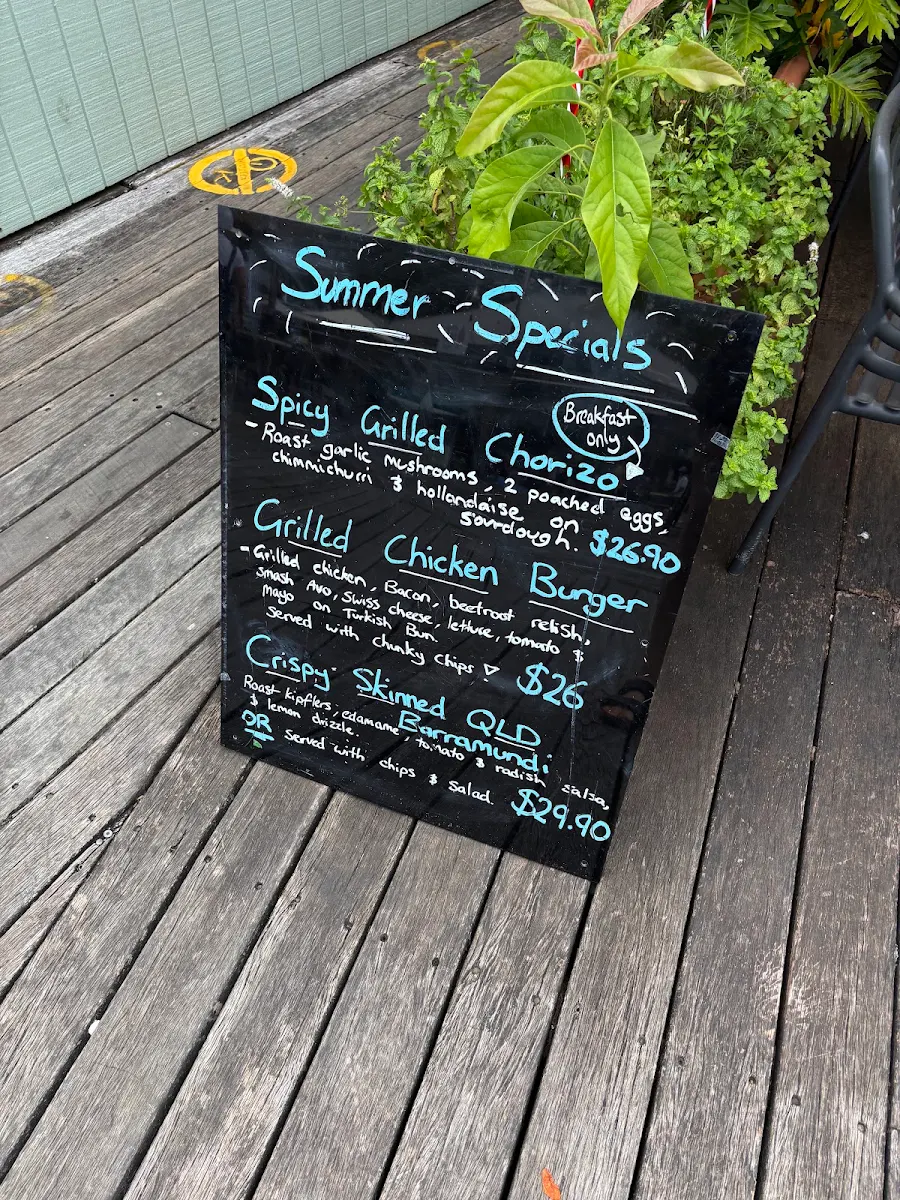 Summer Specials
Breakfast
only
Spicy Grilled Chorizo
- Roast garlic mushrooms, 2 poached eggs,
chimmichurri & hollandaise on
sourdough. $26.90
Grilled Chicken Burger
- Grilled chicken, Bacon, beetroot relish,
smash Avo, swiss cheese, lettuce, tomato &
mayo on Turkish Bun.
Served with chunky chips $26
Crispy Skinned QLD
Barramundi
Roast kipflers, edamame, tomato & radish salsa,
& lemon drizzle.
OR served with chips & salad. $29.90